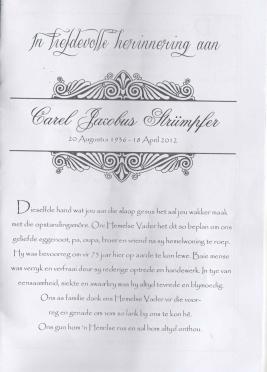 In liefdevolle herinnering aan
Carel Jacobus Strümpfer
20 Augustus 1936 - 18 April 2012
Dieselfde hand wat jou aan die slaap gesus het sal jou wakker maak
met die opstandingsmôre. Ons Hemelse Vader het dit so beplan om ons
geliefde eggenoot, pa, oupa, broer en vriend na sy hemelwoning te roep.
Hy was bevoorreg om vir 75 jaar hier op aarde te kon lewe. Baie mense
was verryk en verfraai deur sy rederige optrede en handewerk. In tye van
eensaamheid, siekte en swaarkry was hy altyd tevrede en blymoedig.
Ons as familie dank ons Hemelse Vader vir die voor-
reg en genade om vir so lank by ons te kon hê.
Ons gun hom 'n Hemelse rus en sal hom altyd onthou.